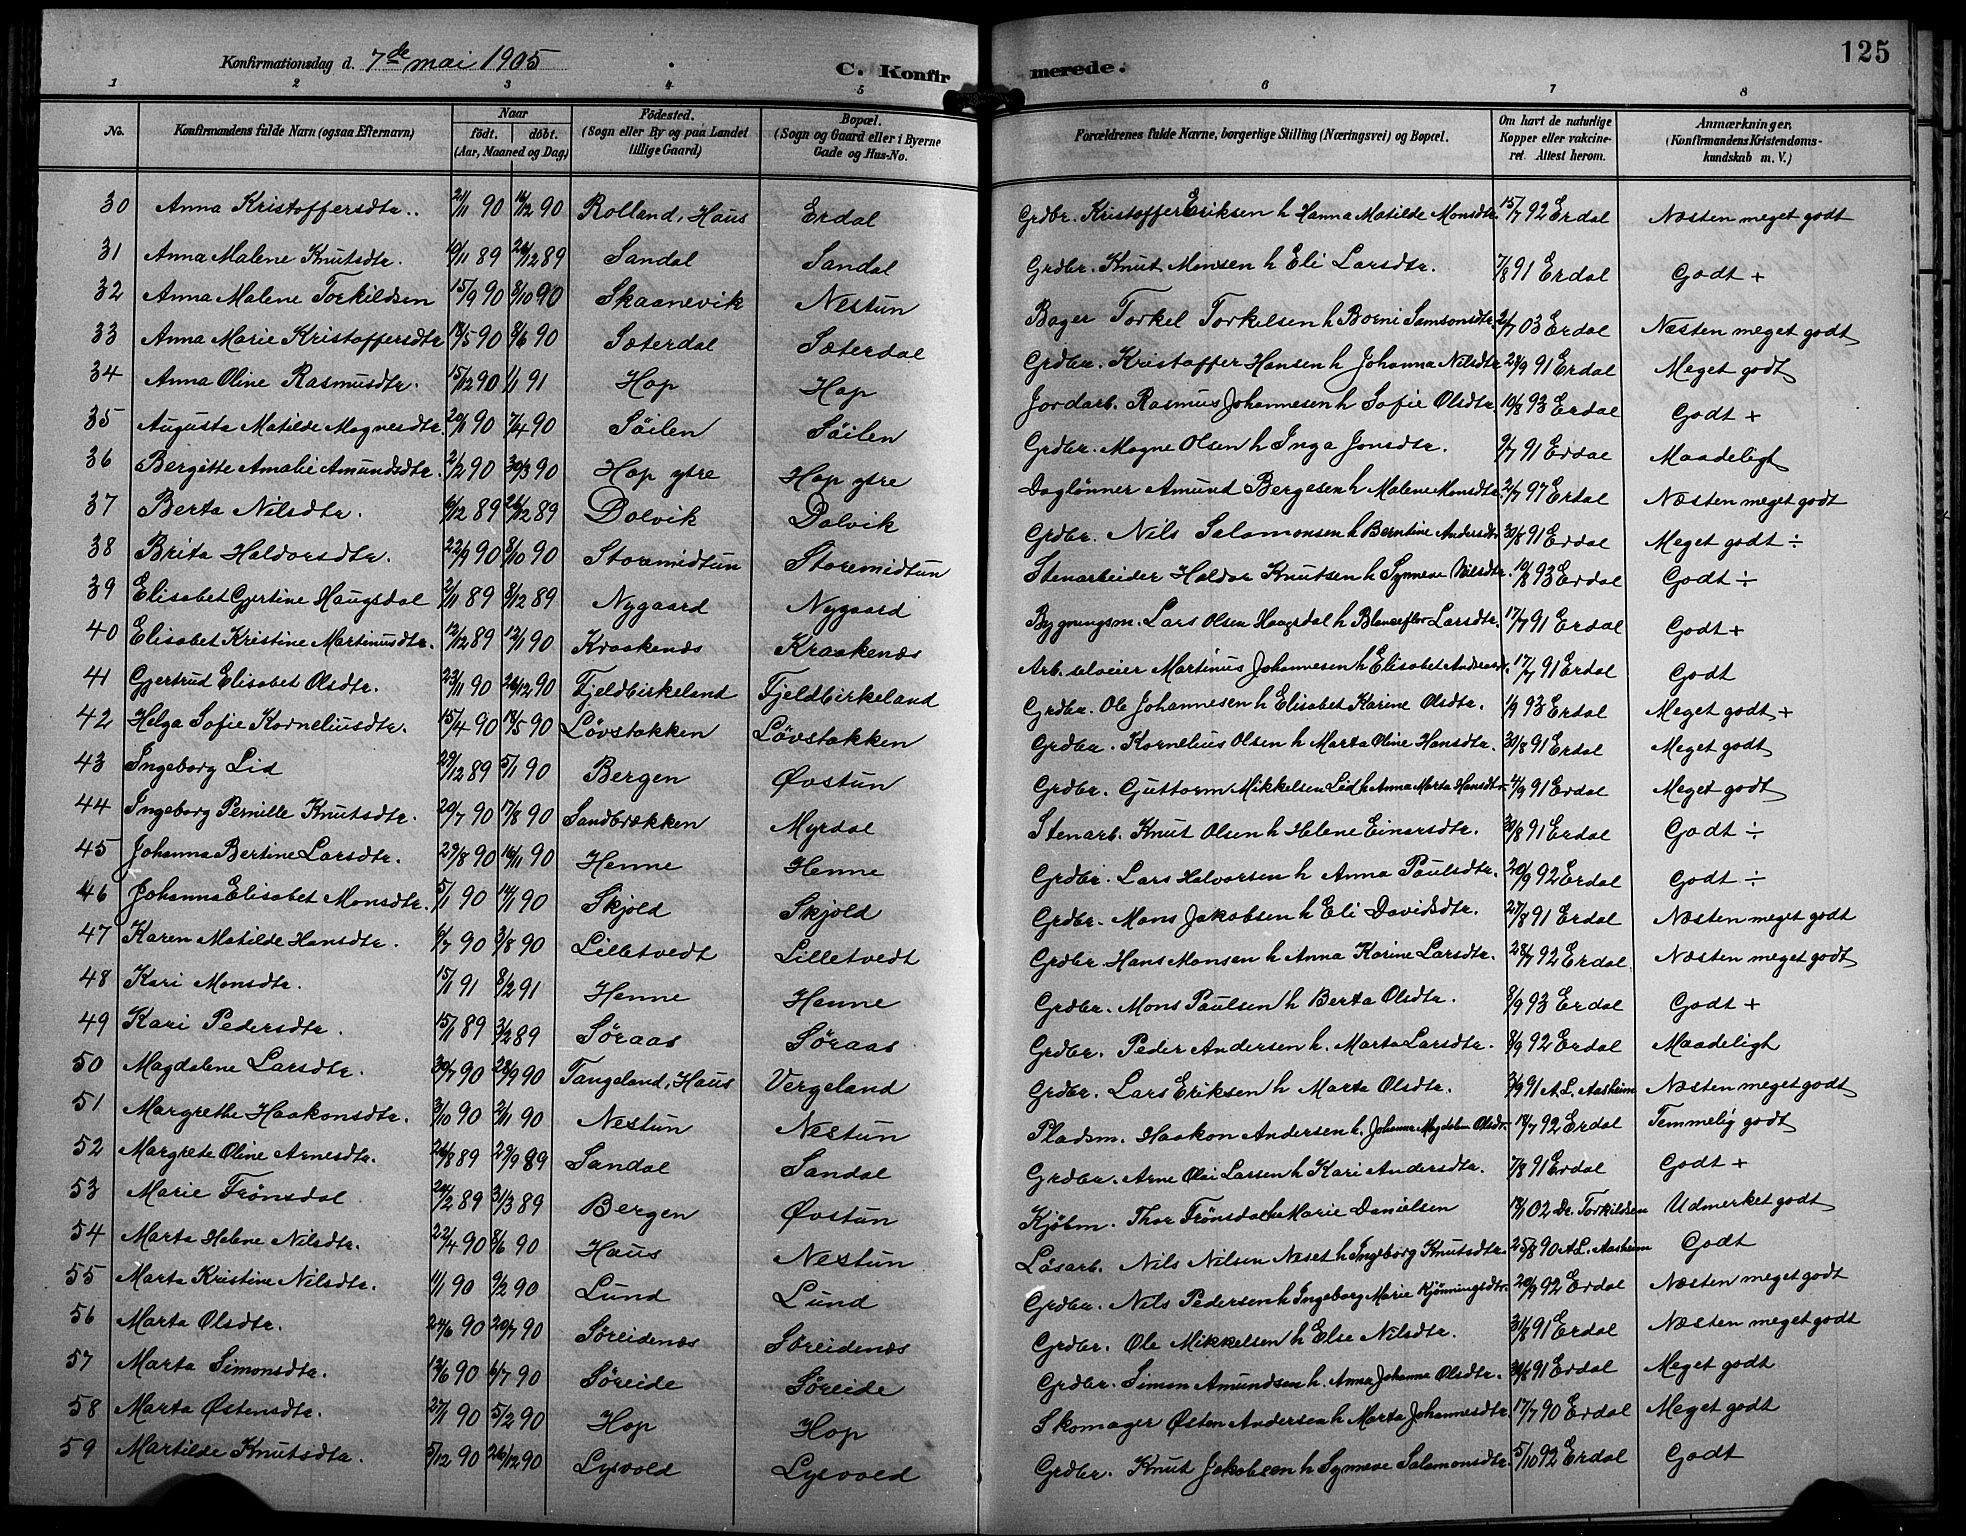 125
Konfirmationsdag d. 7de mai 1905 C. Konfir merede.
1 2 3 4 5 6 7 8
No. Konfirmandens fulde Navn (ogsaa Efternavn) Naar født. døbt. (Aar, Maaned og Dag) Fødested. (Sogn eller By og paa Landet tillige Gaard) Bopæl. (Sogn og Gaard eller i Byerne Gade og Hus-No. Forældrenes fulde Navne, borgerlige Stilling (Næringsvei) og Bopæl. Om havt de naturlige Kopper eller vakcineret. Attest herom. Anmærkninger. (Konfirmandens Kristendomskundskab m. V.)
30 Anna Kristoffersdtr. 21/11 90 14/12 90 Rolland, Haus Erdal Grdbr. Kristoffer Eriksen h Hanna Matilde Monsdtr 15/7 92 Erdal Næsten meget godt
31 Anna Malene Knutsdtr. 19/11 89 26/12 89 Sandal Sandal Grdbr. Knut Monsen h Eli Larsdtr. 7/8 91 Erdal Godt +
32 Anna Malene Torkildsen 15/9 90 8/10 90 Skaanevik Nestun Bager Torkel Torkelsen h Borni Samsonsdtr. 2/7 03 Erdal Næsten meget godt
33 Anna Marie Kristoffersdtr 18/5 90 8/6 90 Sæterdal Sæterdal Grdbr. Kristoffer Hansen h Johanna Nilsdtr 28/9 91 Erdal Meget godt
34 Anna Oline Rasmusdtr. 15/12 90 1/1 91 Hop Hop Jordarb. Rasmus Johannesen h Sofie Olsdtr. 10/8 93 Erdal Godt +
35 Augusta Matilde Magnesdtr. 20/1 90 7/4 90 Søilen Søilen Grdbr. Magne Olsen h Inga Jonsdtr. 9/7 91 Erdal Maadeligt
36 Bergitte Amalie Amundsdtr. 2/2 90 30/3 90 Hop ytre Hop ytre Daglønner Amund Bergesen h Malene Monsdtr. 2/7 97 Erdal Næsten meget godt
37 Berta Nilsdtr. 6/12 89 26/12 89 Dolvik Dolvik Grdbr. Nils Salamonsen h Berntine Andersdtr 30/8 91 Erdal Meget godt ÷
38 Brita Haldorsdtr. 22/9 90 8/10 90 Storemidtun Storemidtun Stenarbeider Haldor Knutsen h Synneve Nilsdtr. 10/8 93 Erdal Godt ÷
39 Elisabet Gjertine Haugsdal 2/11 89 8/12 89 Nygaard Nygaard Bygningsm. Lars Olsen Haugsdal h Blanseflor Larsdtr. 17/7 91 Erdal Godt +
40 Elisabet Kristine Martinusdtr. 12/12 89 12/1 90 Kraakenæs Kraakenæs Arb. selveier Martinus Johannesen h Elisabet Andersdtr. 17/7 91 Erdal Godt
41 Gjertrud Elisabet Olsdtr. 23/11 90 26/12 90 Fjeldbirkeland Fjeldbirkeland Grdbr. Ole Johannesen h Elisabet Karine Olsdtr. 1/9 93 Erdal Meget godt +
42 Helga Sofie Korneliusdtr. 15/4 90 18/5 90 Løvstakken Løvstakken Grdbr. Kornelius Olsen h Marta Oline Hansdtr. 30/8 91 Erdal Meget godt
43 Ingeborg Lid 29/12 89 5/1 90 Bergen Øvstun Grdbr. Guttorm Mikkelsen Lid h Anna Marta Hansdtr. 4/9 91 Erdal Meget godt
44 Ingeborg Pernille Knutsdtr. 20/7 90 17/8 90 Sandbrekken Myrdal Stenarb. Knut Olsen h Helene Einarsdtr. 30/8 91 Erdal Godt ÷
45 Johanna Bertine Larsdtr. 29/8 90 16/11 90 Henne Henne Grdbr. Lars Halvorsen h Anna Paulsdtr. 20/9 92 Erdal Godt ÷
46 Johanna Elisabet Monsdtr. 5/1 90 14/1 90 Skjold Skjold Grdbr. Mons Jakobsen h Eli Davidsdtr. 27/8 91 Erdal Næsten meget godt
47 Karen Matilde Hansdtr. 6/7 90 3/8 90 Lilletvedt Lilletvedt Grdbr. Hans Monsen h Anna Karine Larsdtr. 28/7 92 Erdal Næsten meget godt
48 Kari Monsdtr. 15/1 91 8/2 91 Henne Henne Grdbr. Mons Paulsen h Berta Olsdtr. 8/9 93 Erdal Godt +
49 Kari Pedersdtr. 15/1 89 3/2 89 Søraas Søraas Grdbr. Peder Andersen h. Marta Larsdtr. 8/9 92 Erdal Maadeligt
50 Magdalene Larsdtr. 30/7 90 28/9 90 Tangeland, Haus Vergeland Grdbr. Lars Eriksen h Marta Olsdtr. 3/9 91 A.L. Aasheim Næsten meget godt
51 Margrethe Haakonsdtr. 3/10 90 2/11 90 Nestun Nestun Pladsm. Haakon Andersen h. Johanna Magdalena Olsdtr. 18/7 92 Erdal Temmelig godt
52 Margrete Oline Arnesdtr. 26/8 89 29/9 89 Sandal Sandal Grdbr. Arne Olai Larsen h Kari Andersdtr. 7/8 91 Erdal Godt +
53 Marie Frønsdal 24/2 89 31/3 89 Bergen Øvstun Kjøbm. Thor Frønsdal h Marie Danielsen 18/1 02 Dr. Torkildsen Udmerket godt
54 Marta Helene Nilsdtr. 22/4 90 8/6 90 Haus Nestun Løsarb. Nils Nilsen Neset h Ingeborg Knutsdtr. 25/8 90 A.L. Aasheim Godt
55 Marta Kristine Nilsdtr. 11/1 90 9/2 90 Lund Lund Grdbr. Nils Pedersen h Ingeborg Marie Kjønningsdtr. 20/9 92 Erdal Næsten meget godt
56 Marta Olsdtr. 24/6 90 20/7 90 Søreidenæs Søreidenæs Grdbr. Ole Mikkelsen h Else Nilsdtr. 31/8 91 Erdal Næsten meget godt
57 Marta Simonsdtr. 12/6 90 6/7 90 Søreide Søreide Grdbr. Simon Amundsen h. Anna Johanna Olsdtr. 30/8 91 Erdal Meget godt
58 Marta Østensdtr. 27/1 90 5/2 90 Hop Hop Skomager Østen Andersen h Marta Johannesdtr. 17/7 90 Erdal Meget godt
59 Martilde Knutsdtr. 5/12 90 26/12 90 Lysvold Lysvold Grdbr. Knut Jakobsen h Synneve Salamonsdtr. 5/10 92 Erdal Godt